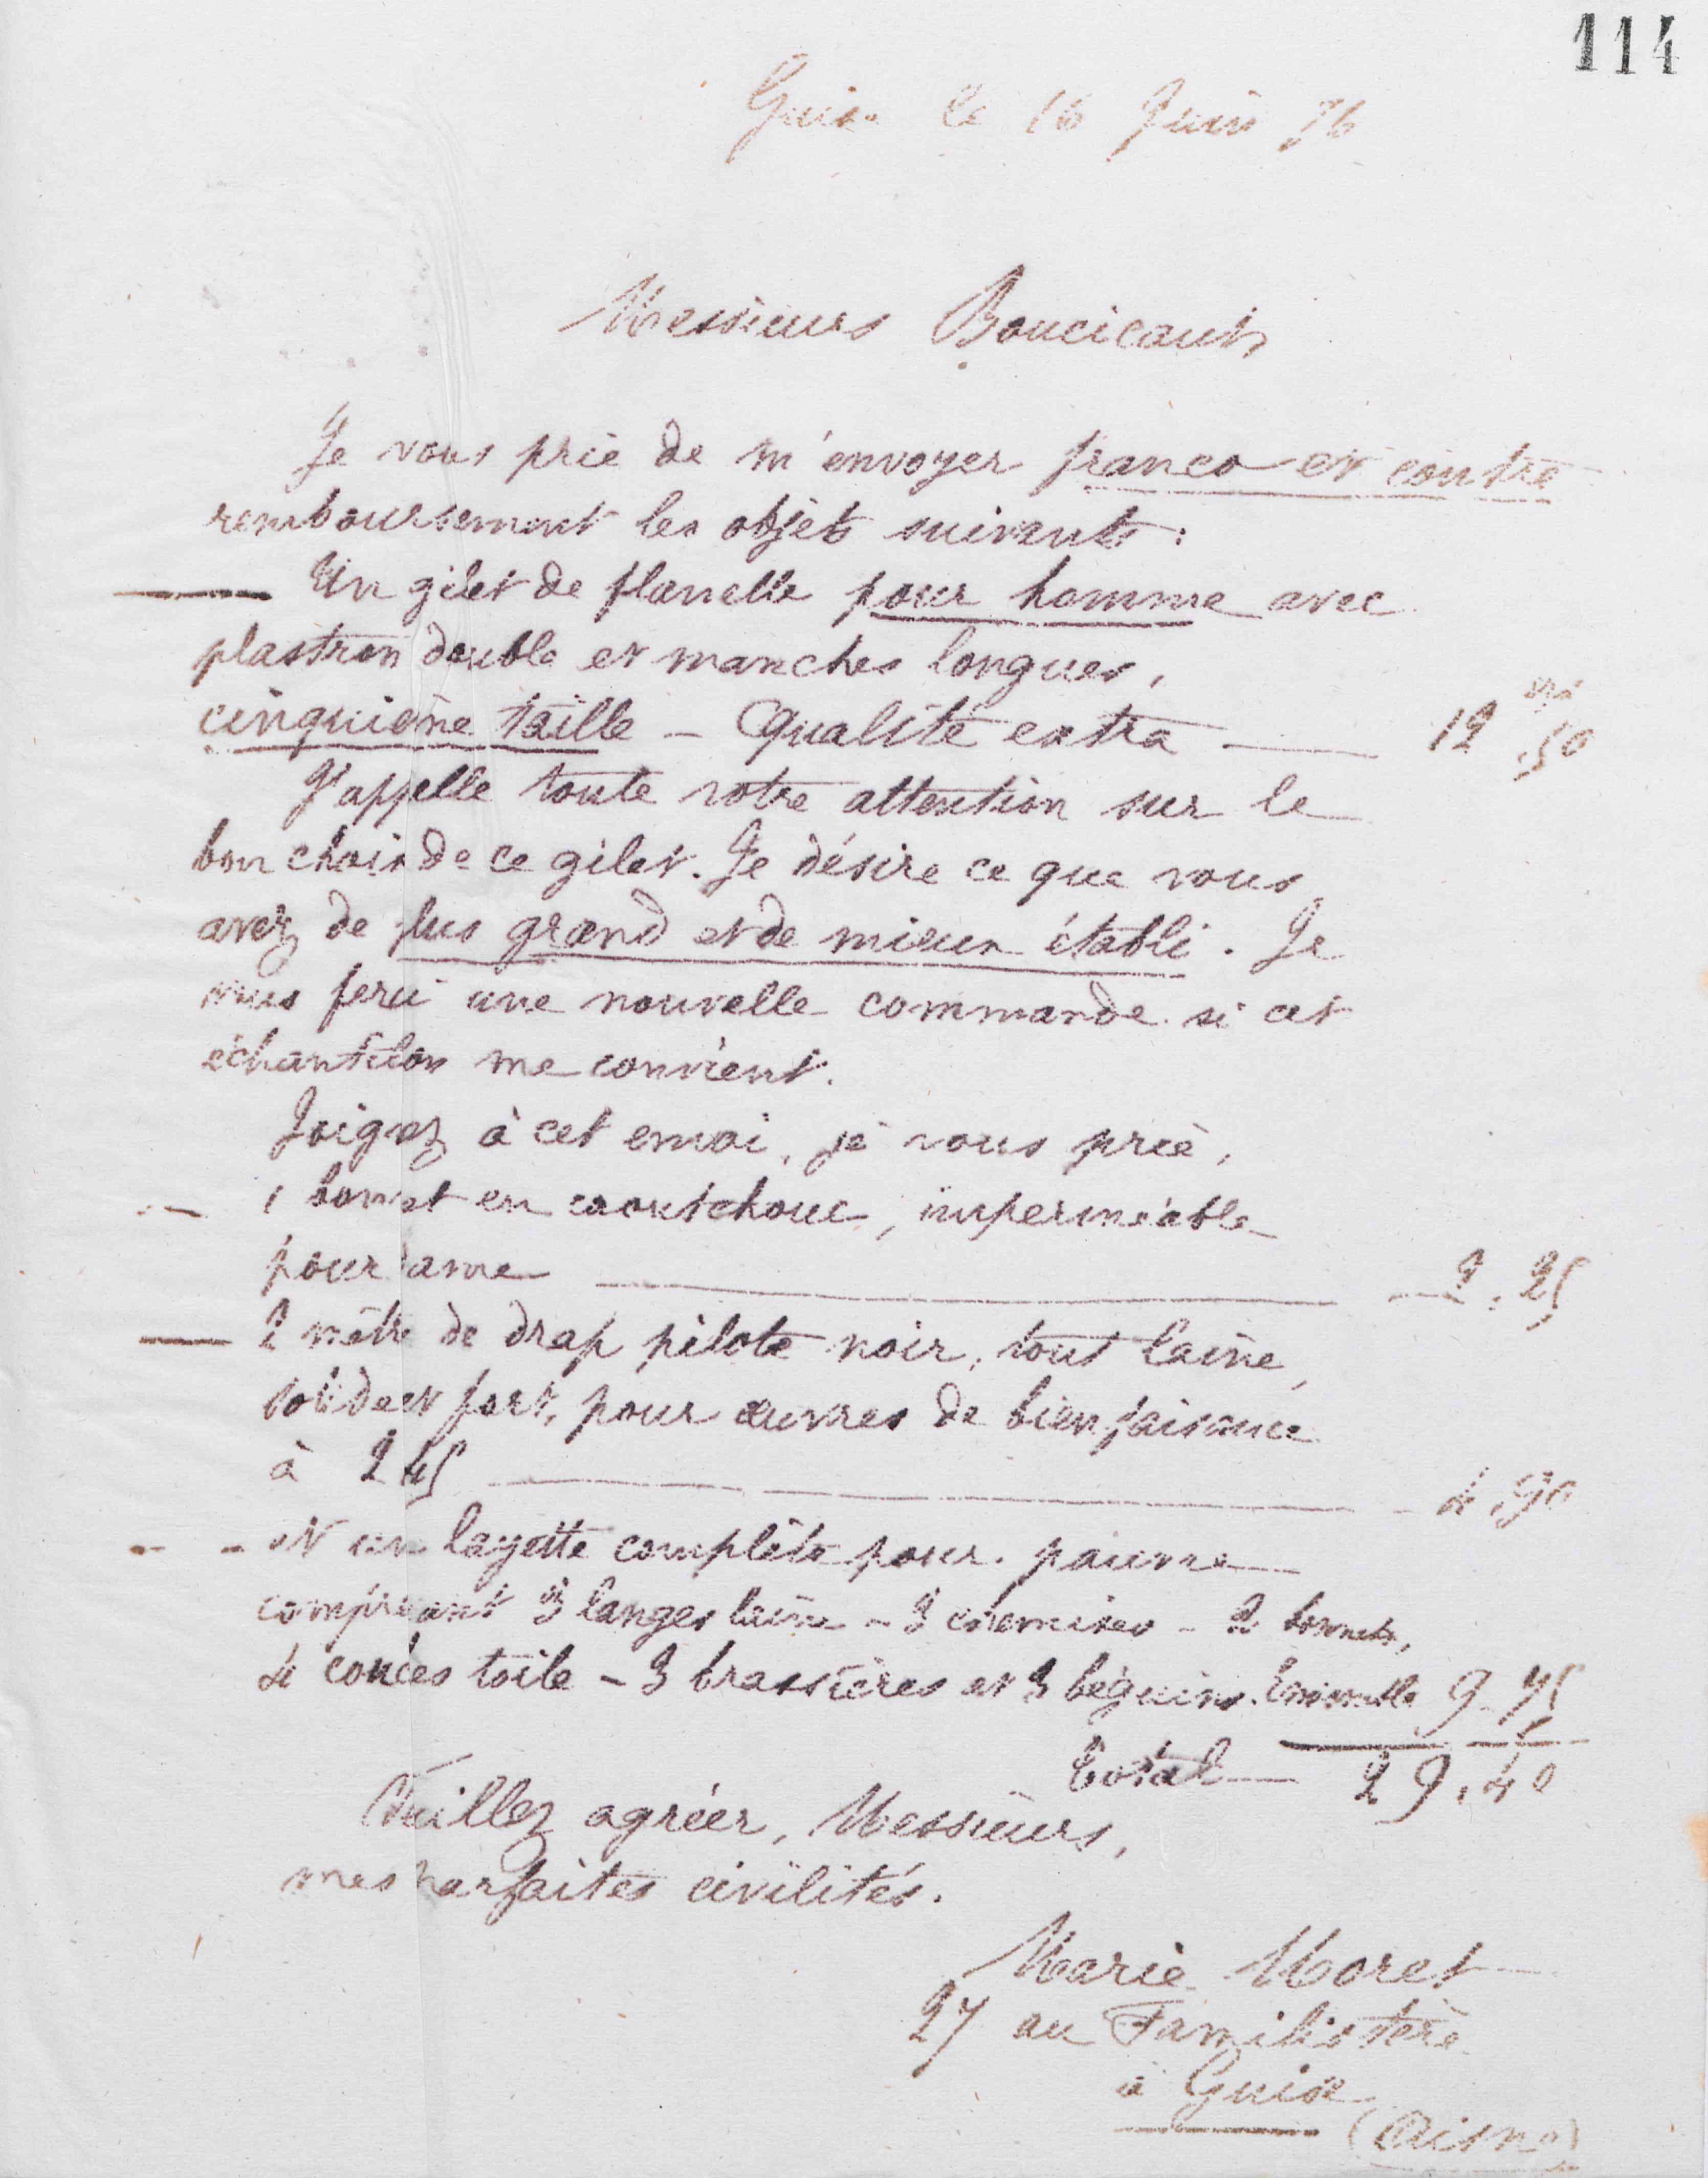 114
Guise le 16 Juin 76
Messieurs Boucicaut
Je vous prie de m'envoyer franco et contre
remboursement les objets suivants :
Un gilet de flanelle pour homme avec
plastron double et manches longues,
cinquième taille – Qualité extra — 12 50
J'appelle toute votre attention sur le
bon choix de ce gilet. Je désire ce que vous
avez de plus grand et de mieux établi. Je
vous ferai une nouvelle commande si cet
échantillon me convient.
Joignez à cet envoi, je vous prie,
1 bonnet en caoutchouc, imperméable
pour dame — 2.25
2 mètre de drap pilote noir, tout laine,
solide et fort, pour œuvres de bienfaisance
à 2 45 — 4 90
et un layette complète pour pauvre
comprenant 3 langes laine – 3 chemises – 2 bonnets,
4 couches toile – 3 brassières et 3 béguins. Ensemble 9.75
Total — 29.40
Veuillez agréer, Messieurs,
mes parfaites civilités.
Marie Moret
27 au Familistère
à Guise
(Aisne)